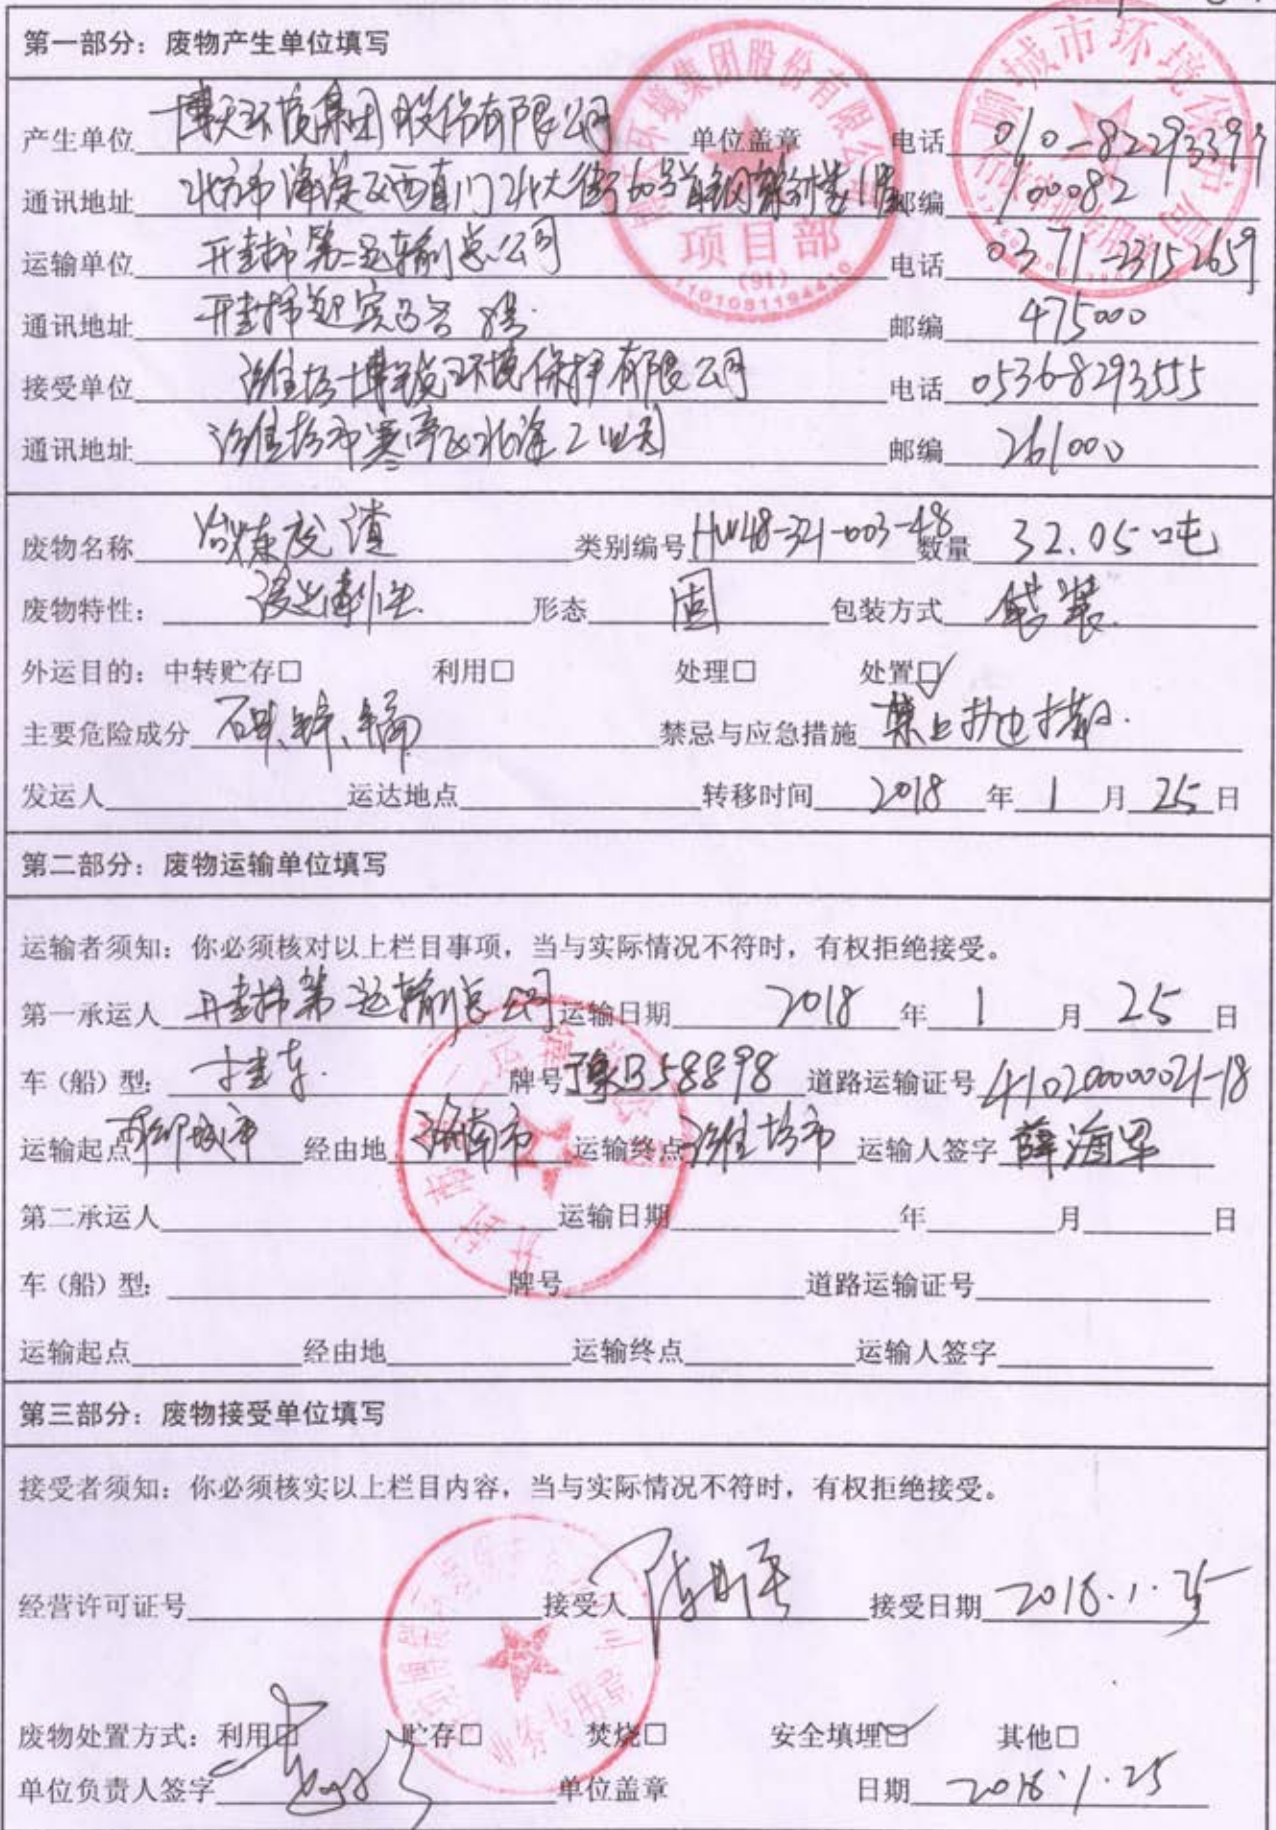 第一部分：废物产生单位填写
产生单位 博天环境集团股份有限公司 单位盖章 电话 010-82293399
通讯地址 北京市海淀区西直门北大街60号首钢 邮编 100082
运输单位 开封市第二运输总公司 电话 0371-23152659
通讯地址 开封市迎宾路 8号 邮编 475000
接受单位 潍坊博锐环境保护有限公司 电话 0536-8293555
通讯地址 潍坊市寒亭区北海工业园 邮编 261000
废物名称 冶炼废渣 类别编号 HW48-321-003-48 数量 32.05吨
废物特性： 浸出毒性 形态 固 包装方式 袋装
外运目的：中转贮存□ 利用□ 处理□ 处置☑
主要危险成分 砷、锌、镉 禁忌与应急措施 禁止
发运人 运达地点 转移时间 2018 年 1 月 25 日
第二部分：废物运输单位填写
运输者须知：你必须核对以上栏目事项，当与实际情况不符时，有权拒绝接受。
第一承运人 开封市第二运输总公司 运输日期 2018 年 1 月 25 日
车（船）型： 挂车 牌号 豫B58898 道路运输证号 410200000021-18
运输起点 聊城市 经由地 济南市 运输终点 潍坊市 运输人签字 薛海军
第二承运人 运输日期 年 月 日
车（船）型： 牌号 道路运输证号
运输起点 经由地 运输终点 运输人签字
第三部分：废物接受单位填写
接受者须知：你必须核实以上栏目内容，当与实际情况不符时，有权拒绝接受。
经营许可证号 接受人 接受日期 2018.1.25
废物处置方式：利用□ 贮存□ 焚烧□ 安全填埋☑ 其他□
单位负责人签字 单位盖章 日期 2018.1.25
环境集团股份有限公司
项目部
(91)
1101081194410
聊城市环境保护局
业务专用章